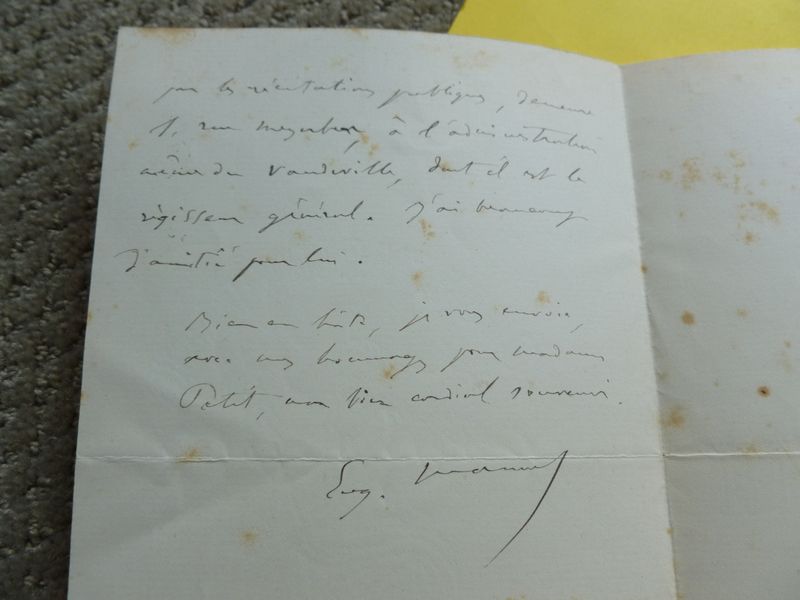 par les récitations publiques, demeure
1, rue Meyerbeer, à l'administration
même du Vaudeville, dont il est le
régisseur général. J'ai beaucoup
d'amitié pour lui.
Bien en hâte, je vous envoie,
avec mes hommages pour madame
Petit, mon bien cordial souvenir.
Eug. Manuel